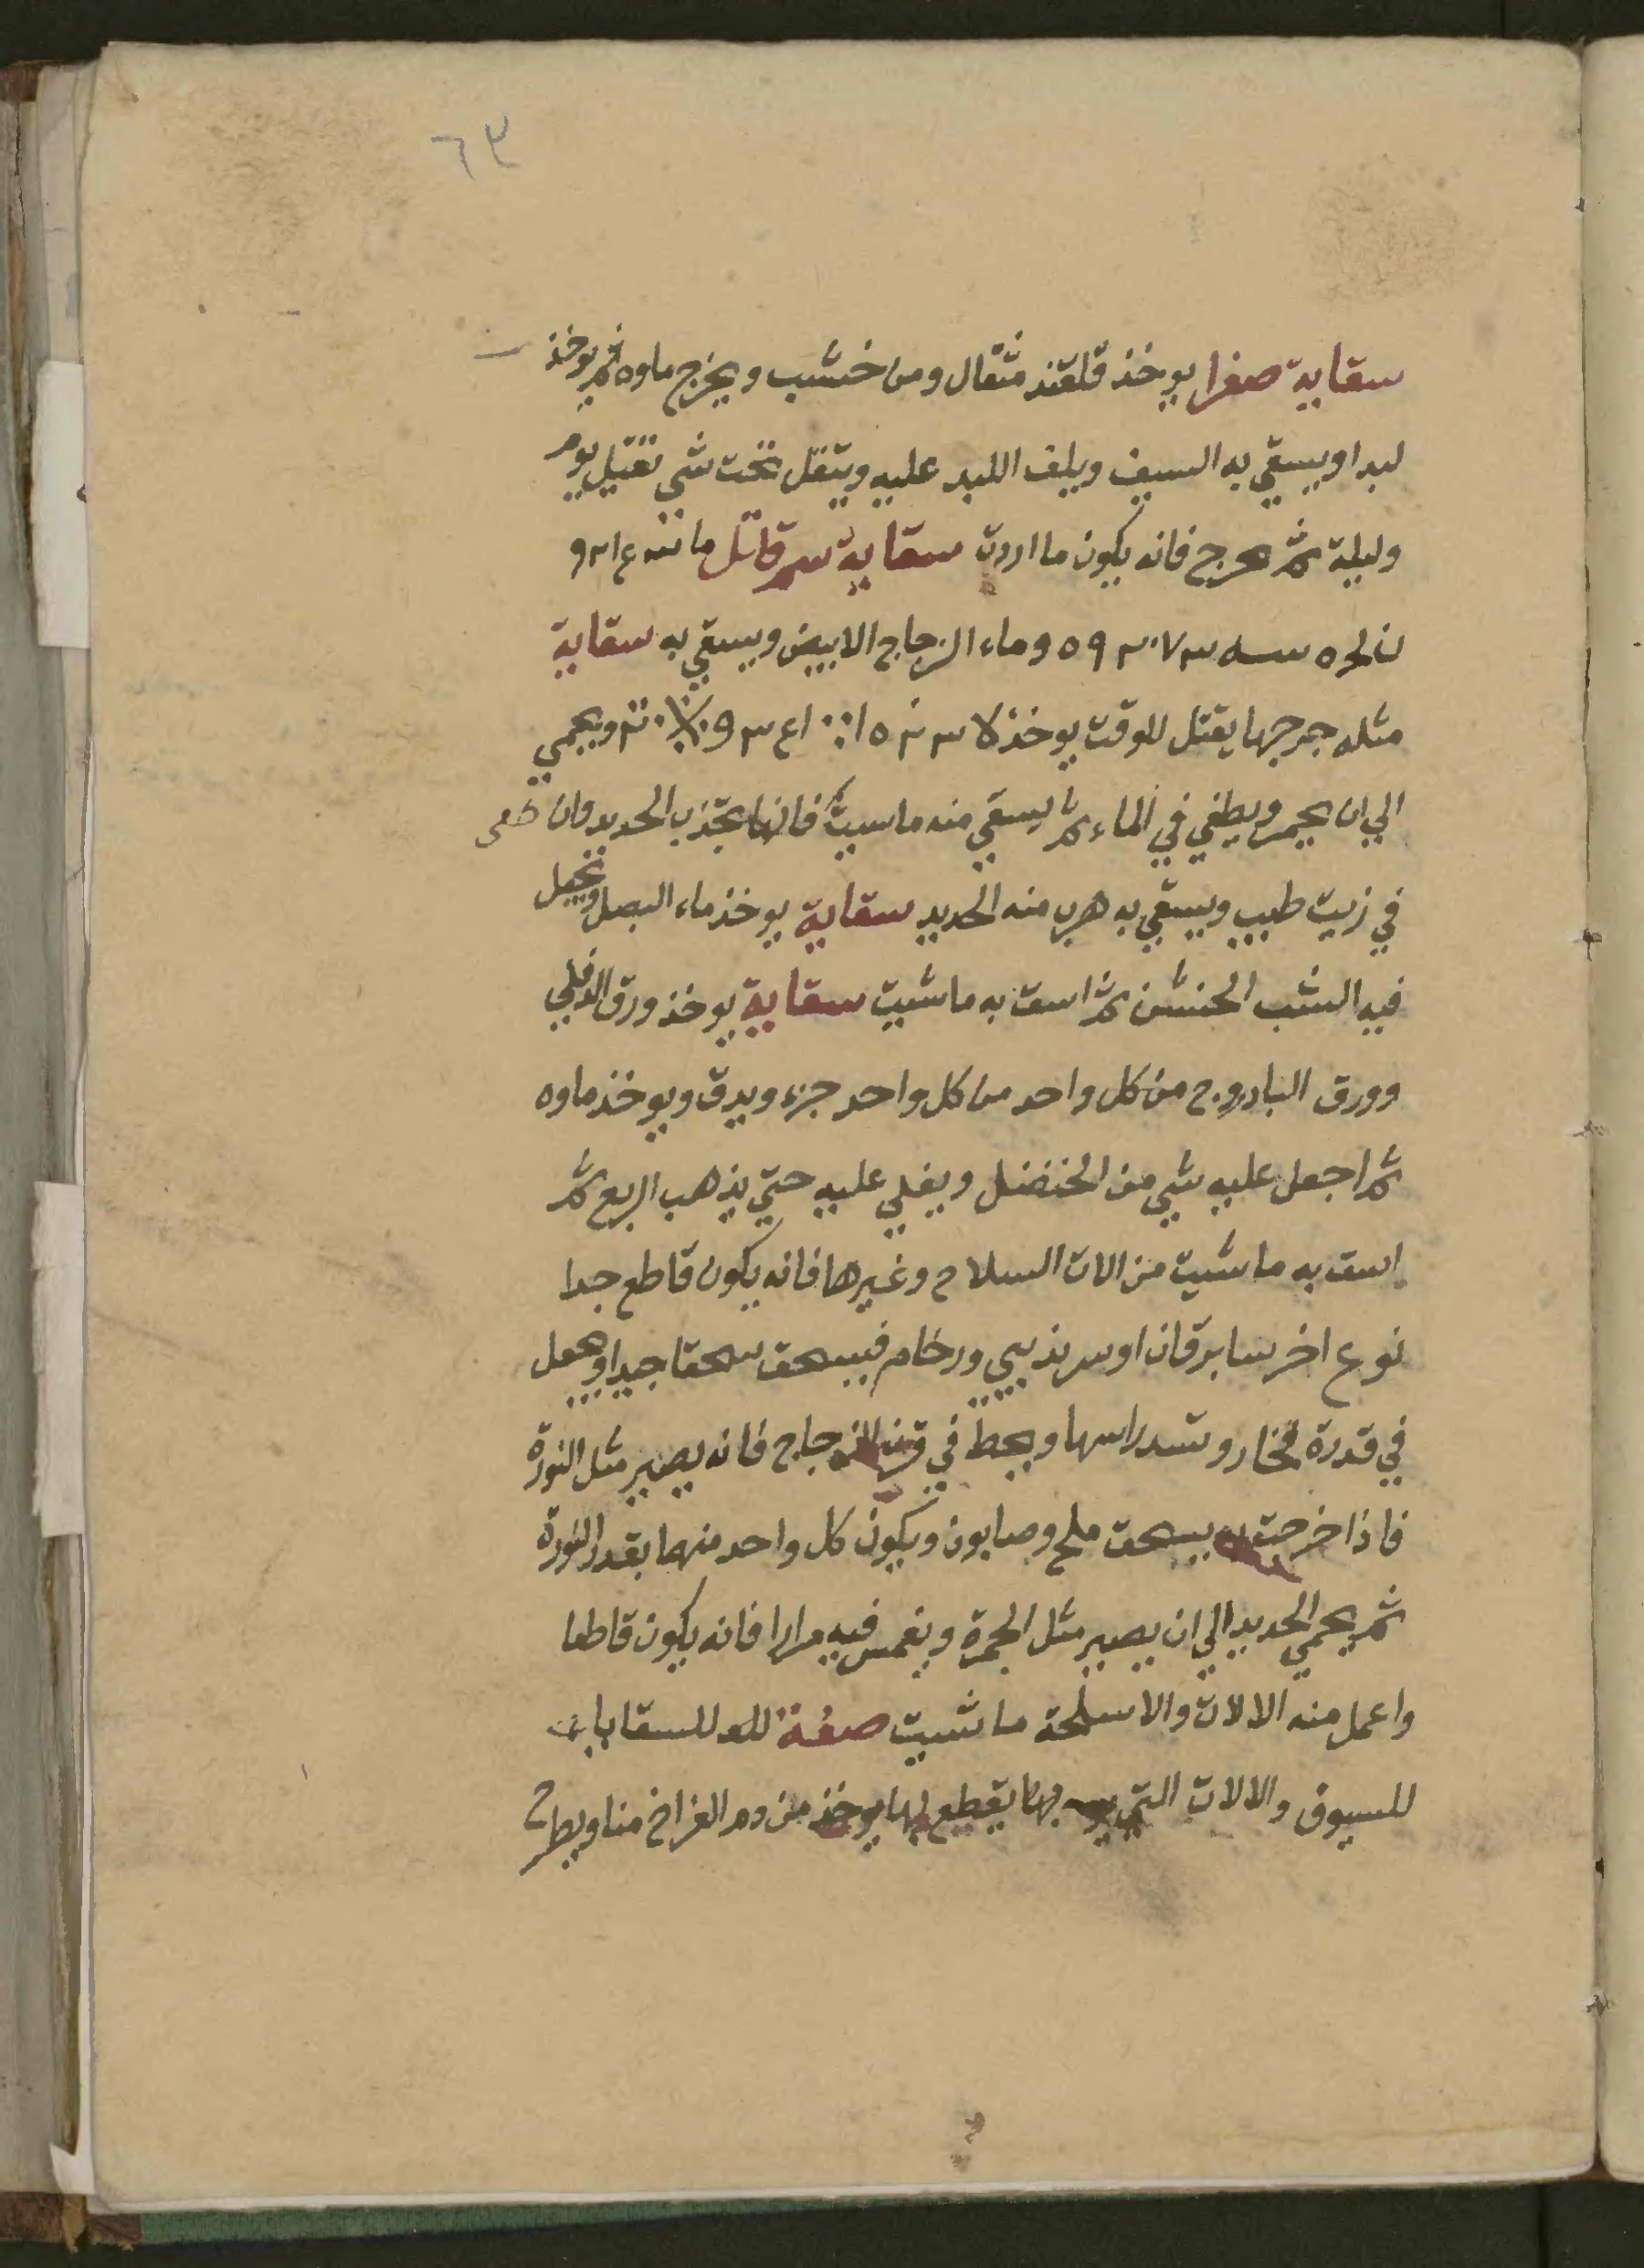 ٦٣
سقاية صفرا يوخذ قلقند مثقال ومن خشب ويخرج ماوه ثم يوخذ
لبدا ويسقي به السيف ويلف اللبد عليه ويثقل تحت شي ثقيل يوم
وليلة ثم يخرج فانه يكون ما اردت سقاية سم قاتل
وماء الزجاج الابيض ويسقي به سقاية
مثله جرحها يقتل للوقت يوخذ ويحمي
الي ان يحمر ويطفي في الماء ثم يسقي منه ماسيت فانها تجذب الحديد وان طفى
في زيت طيب ويسقي به هرب منه الحديد سقاية يوخذ ماء البصل ويحيل
فيه الشب الحنشن ثم اسق به ماشيت سقاية يوخذ ورق الدفلي
وورق البادروج من كل واحد من كل واحد جزء ويدق ويوخذ ماوه
ثم اجعل عليه شي من الخنضل ويغلي عليه حتي يذهب الربع ثم
اسق به ماشيت من الات السلاح وغيرها فانه يكون قاطع جدا
نوع اخر سابرقان او سرنديبي ورخام فيسحق سحقا جيدا ويجعل
في قدرة فخار وتسد راسها ويحط في الزجاج فانه يصير مثل النورة
فاذا خرجت يسحق ملح وصابون ويكون كل واحد منهما بقدر النورة
ثم يحمي الحديد الي ان يصير مثل الجمرة ويغمس فيه مرارا فانه يكون قاطعا
واعمل منه الالات والاسلحة ماشيت صفة للسقايات
للسيوف والالات التي بها يقطع بها يوخذ من دم الفراخ منا ويطرح